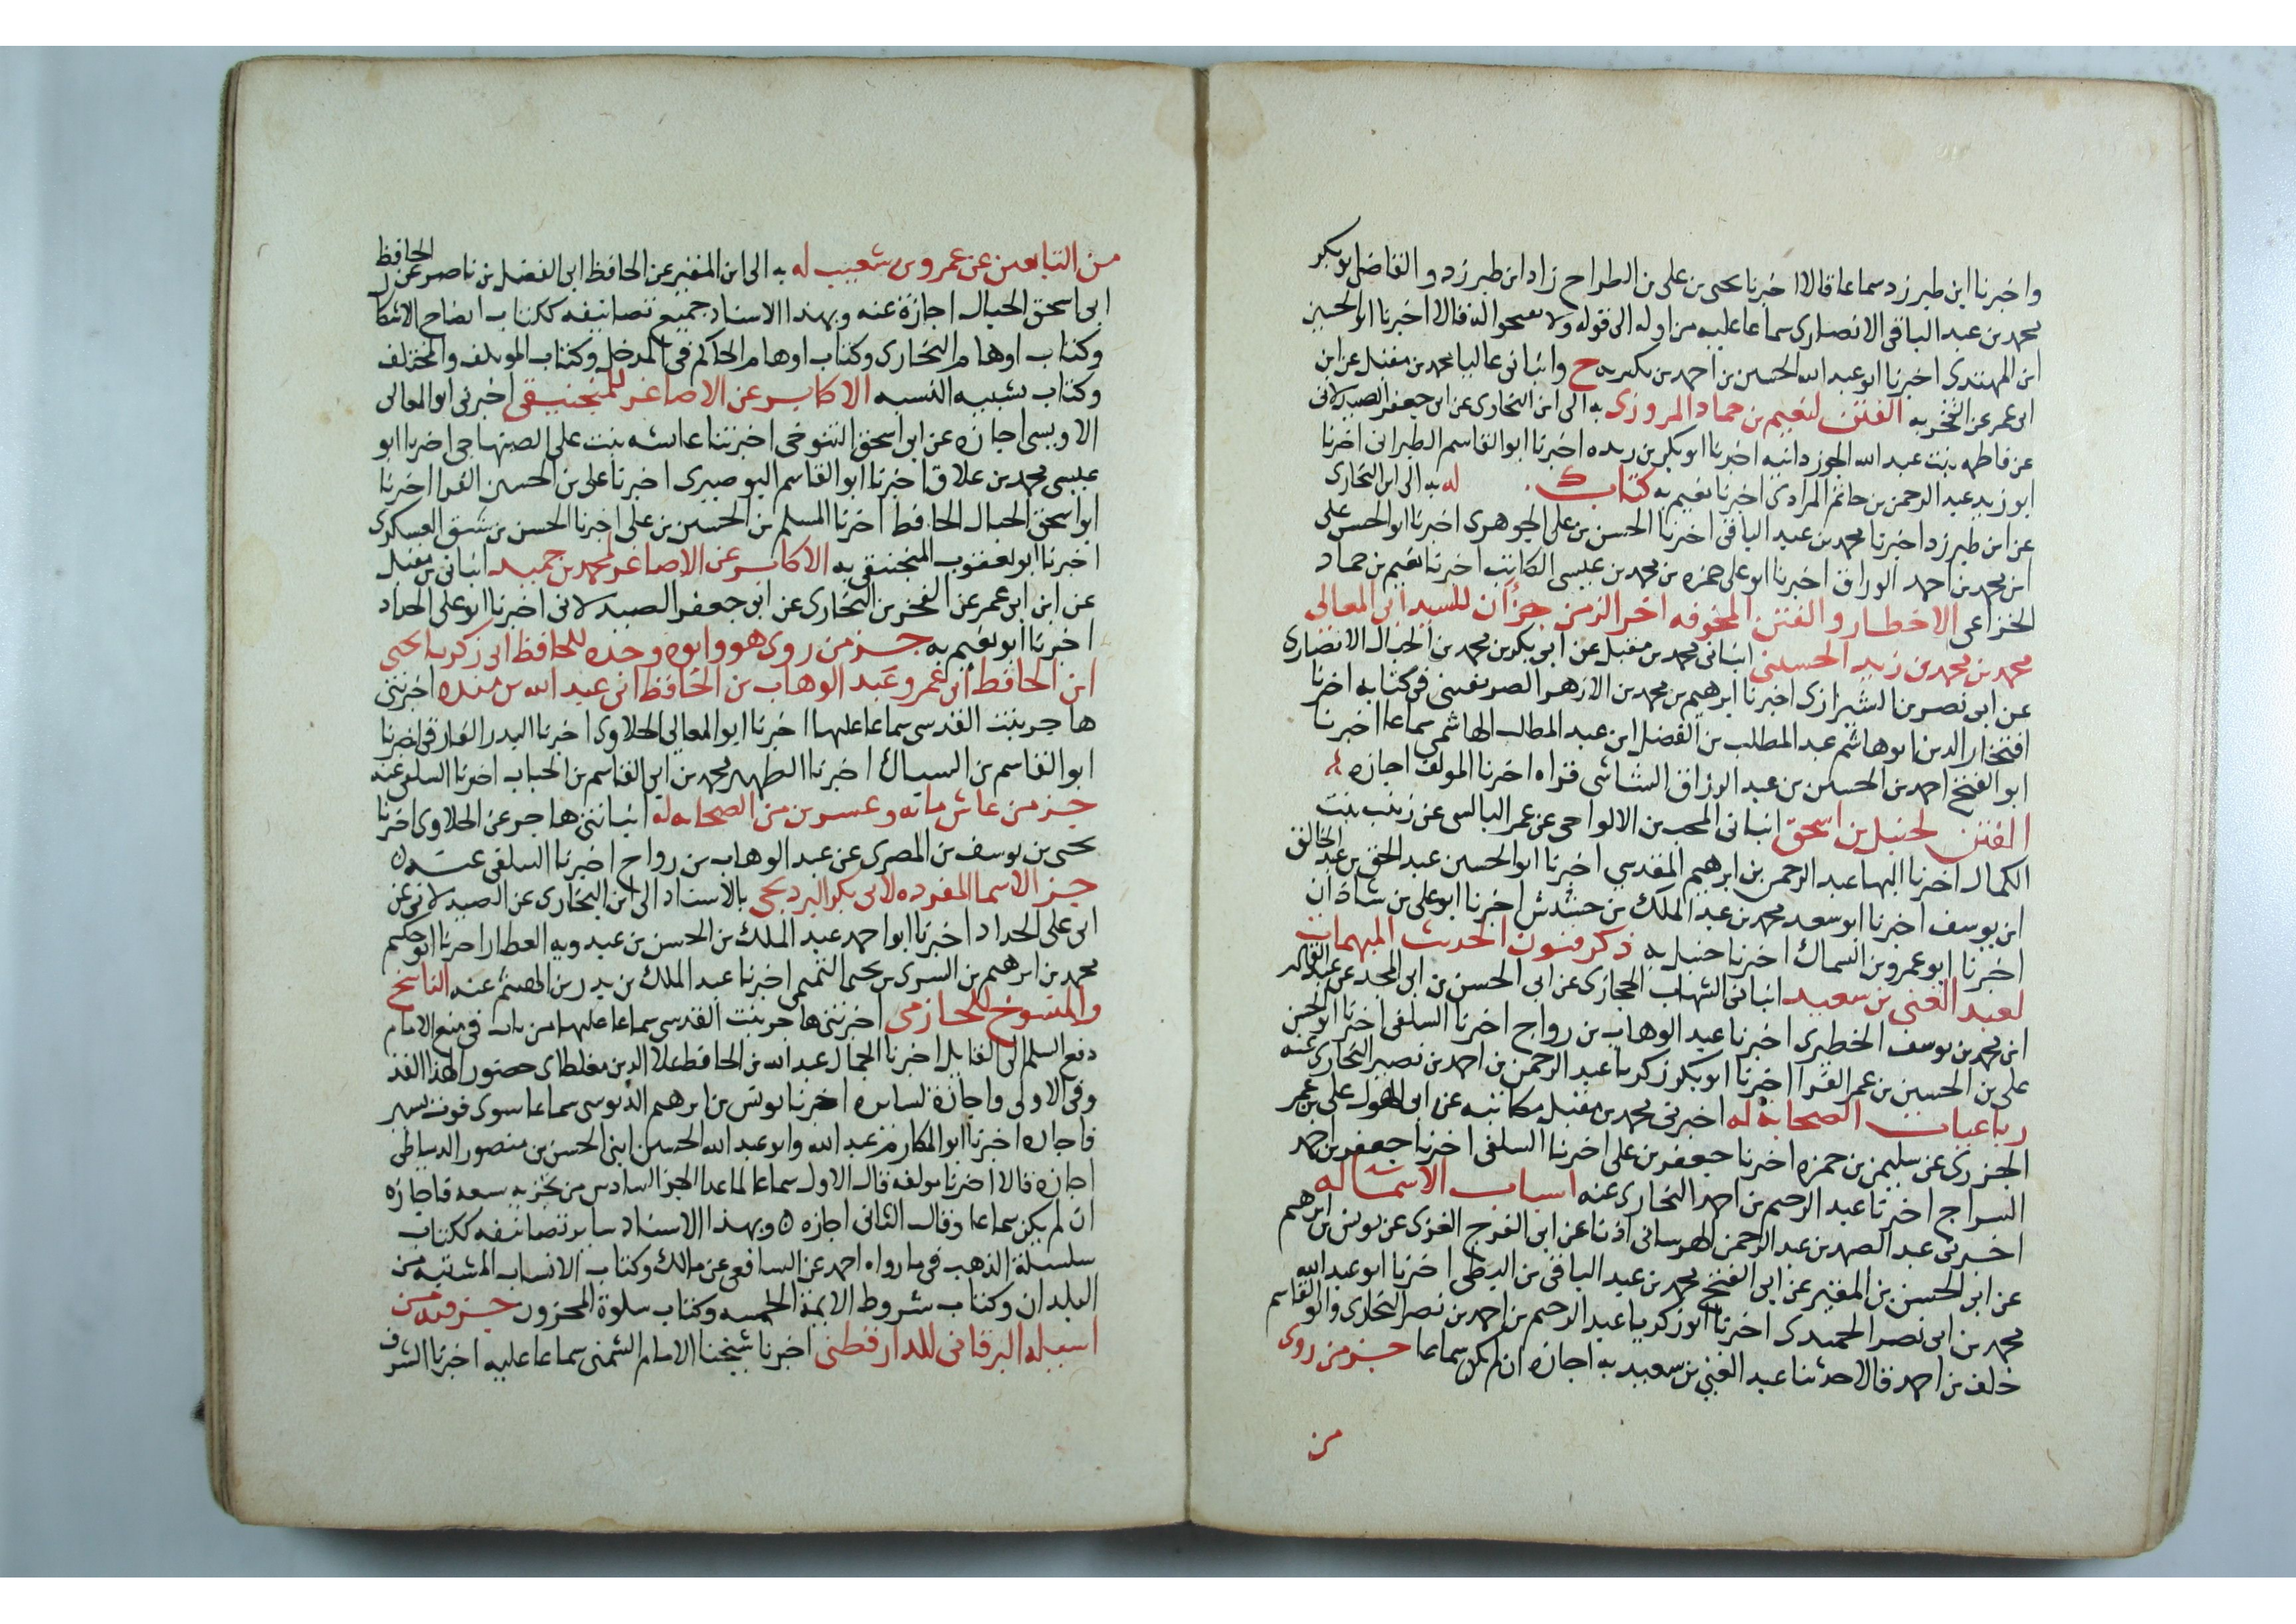 واخبرنا ابن طبرزد سماعا قالا اخبرنا يحيى بن على بن الطراح زاد ابن طبرزد والقاضى ابو بكر
محمد بن عبد الباقى الانصارى سماعا عليه من اوله الى قوله ولا قالا اخبرنا ابو الحسين
ابن المهتدى اخبرنا ابو عبد الله الحسين بن احمد بن بكير به ح وانبانى عاليا محمد بن مقبل عن ابن
ابى عمر عن الفخر به الفتن لنعيم بن حماد المروزى به الى ابن البخارى عن ابى جعفر الصيدلانى
عن فاطمه بنت عبد الله الجوزدانيه اخبرنا ابو بكر بن ريده اخبرنا ابو القاسم الطبرانى اخبرنا
ابو زيد عبد الرحمن بن حاتم المرادى اخبرنا نعيم به كتاب له به الى ابن البخارى
عن ابن طبرزد اخبرنا محمد بن عبد الباقى اخبرنا الحسن بن على الجوهرى اخبرنا ابو الحسن على
ابن محمد بن احمد الوراق اخبرنا ابو على حمزه بن محمد بن عيسى الكاتب اخبرنا نعيم بن حماد
الخزاعى الاخطار والفتن المخوفه اخر الزمن جزآن للسيد ابى المعالى
محمد بن محمد بن زيد الحسينى انبانى محمد بن مقبل عن ابى بكر بن محمد بن الحبال الانصارى
عن ابى نصر بن الشيرازى اخبرنا ابرهيم بن محمد بن الازهر الصريفينى فى كتابه اخبرنا
افتخار الدين ابو هاشم عبد المطلب بن الفضل ابن عبد المطلب الهاشمى سماعا اخبرنا
ابو الفتح احمد بن الحسين بن عبد الرزاق الشاشى قراه اخبرنا المولف اجازه
الفتن لحنبل بن اسحق انبانى المحب بن الالواحى عن عمر البالسى عن زينب بنت
الكمال اخبرنا البها عبد الرحمن بن ابرهيم المقدسى اخبرنا ابو الحسين عبد الحق بن عبد الخالق
ابن يوسف اخبرنا ابو سعد محمد بن عبد الملك بن خشيش اخبرنا ابو على بن شاذان
اخبرنا ابو عمرو بن السماك اخبرنا حنبل به ذكر فنون الحديث المبهمات
لعبد الغنى بن سعيد انبانى الشهاب الحجازى عن ابى الحسن بن ابى المجد عن عبد القادر
ابن محمد بن يوسف الخطيرى اخبرنا عبد الوهاب بن رواج اخبرنا السلفى اخبرنا ابو الحسن
على بن الحسين بن عمر الفرا اخبرنا ابو بكر زكريا عبد الرحمن بن احمد بن نصير البخارى عنه
رباعيات الصحابة له اخبرنى محمد بن مقبل مكاتبه عن ابى الهول على بن عمر
الجزرى عن سليمن بن حمزه اخبرنا جعفر بن على اخبرنا السلفى اخبرنا جعفر بن احمد
السراج اخبرنا عبد الرحيم بن احمد البخارى عنه اسباب الاسما له
اخبرنى عبد الصمد بن عبد الرحمن الهرسانى اذنا عن ابى الفرج الغزى عن يونس بن ابرهيم
عن ابى الحسن بن المقير عن ابى الفتح محمد بن عبد الباقى بن البطى اخبرنا ابو عبد الله
محمد بن ابى نصر الحميدى اخبرنا ابو زكريا عبد الرحيم بن احمد بن نصر البخارى وابو القاسم
خلف بن احمد قالا حدثنا عبد الغنى بن سعيد به اجازه ان لم يكن سماعا جز من روى
من
من التابعين عن عمرو بن شعيب له به الى ابن المقير عن الحافظ ابى الفضل بن ناصر عن الحافظ
ابى اسحق الحبال اجازة عنه وبهذا الاسناد جميع تصانيفه ككتاب ايضاح الاشكال
وكتاب اوهام البخارى وكتاب اوهام الحاكم فى المدخل وكتاب الموتلف والمختلف
وكتاب مشتبه النسبه الاكابر عن الاصاغر للمنجنيقى اخبرنى ابو المعالى
الاوبسى اجازه عن ابى اسحق التنوخى اخبرتنا عائشه بنت على الصنهاجى اخبرنا ابو
عيسى محمد بن علاق اخبرنا ابو القاسم البوصيرى اخبرنا على بن الحسين الفرا اخبرنا
ابو اسحق الحبال الحافظ اخبرنا المسلم بن الحسين بن على اخبرنا الحسن بن رشيق العسكرى
اخبرنا ابو يعقوب المنجنيقى به الاكابر عن الاصاغر لمحمد بن حميد انبانى بن مقبل
عن ابن ابى عمر عن الفخر بن البخارى عن ابى جعفر الصيدلانى اخبرنا ابو على الحداد
اخبرنا ابو نعيم به جز من روى هو وابوه وجده للحافظ ابى زكريا يحيى
ابن الحافظ ابى عمرو عبد الوهاب بن الحافظ ابى عبد الله بن منده اخبرتنى
هاجر بنت القدسى سماعا عليها اخبرنا ابو المعالى الحلاوى اخبرنا البدر الفارقى اخبرنا
ابو القاسم بن السباك اخبرنا الظهير محمد بن ابى القاسم بن الحباب اخبرنا السلفى عنه
جز من عاش مايه وعشرين من الصحابه له انباتنى هاجر عن الحلاوى اخبرنا
يحيى بن يوسف بن المصرى عن عبد الوهاب بن رواج اخبرنا السلفى عنه
جز الاسما المفرده لابى بكر البرديجى بالاسناد الى ابن البخارى عن الصيدلانى عن
ابى على الحداد اخبرنا ابو احمد عبد الملك بن الحسن بن عبدويه العطار اخبرنا ابو حكيم
محمد بن ابرهيم بن السرى بن يحيى التميمى اخبرنا عبد الملك بن بدر بن الهيثم عنه الناسخ
والمنسوخ للحازمى اخبرتنى هاجر بنت القدسى سماعا عليها من باب فى منع الامام
دفع السلب الى القاتل اخبرنا الجمال عبد الله بن الحافظ علا الدين مغلطاى حضورا لهذا القدر
وفى الاولى واجازة لسايره اخبرنا يونس بن ابرهيم الدبوسى سماعا سوى فوت يسير
فاجازه اخبرنا ابو المكارم عبد الله وابو عبد الله الحسين ابنى الحسن بن منصور الدمياطى
اجازه قالا اخبرنا مولفه قال الاول سماعا لما عدا الجز السادس من تجزيه سعد فاجازه
ان لم يكن سماعا وقال الثانى اجازه وبهذا الاسناد ساير تصانيفه ككتاب
سلسلة الذهب فى ما رواه احمد عن الشافعى عن مالك وكتاب الانساب المشتبه من
البلدان وكتاب شروط الايمة الخمسه وكتاب سلوة المحزون جز فيه من
اسيله البرقانى للدارقطنى اخبرنا شيخنا الامام الشمنى سماعا عليه اخبرنا الشرف